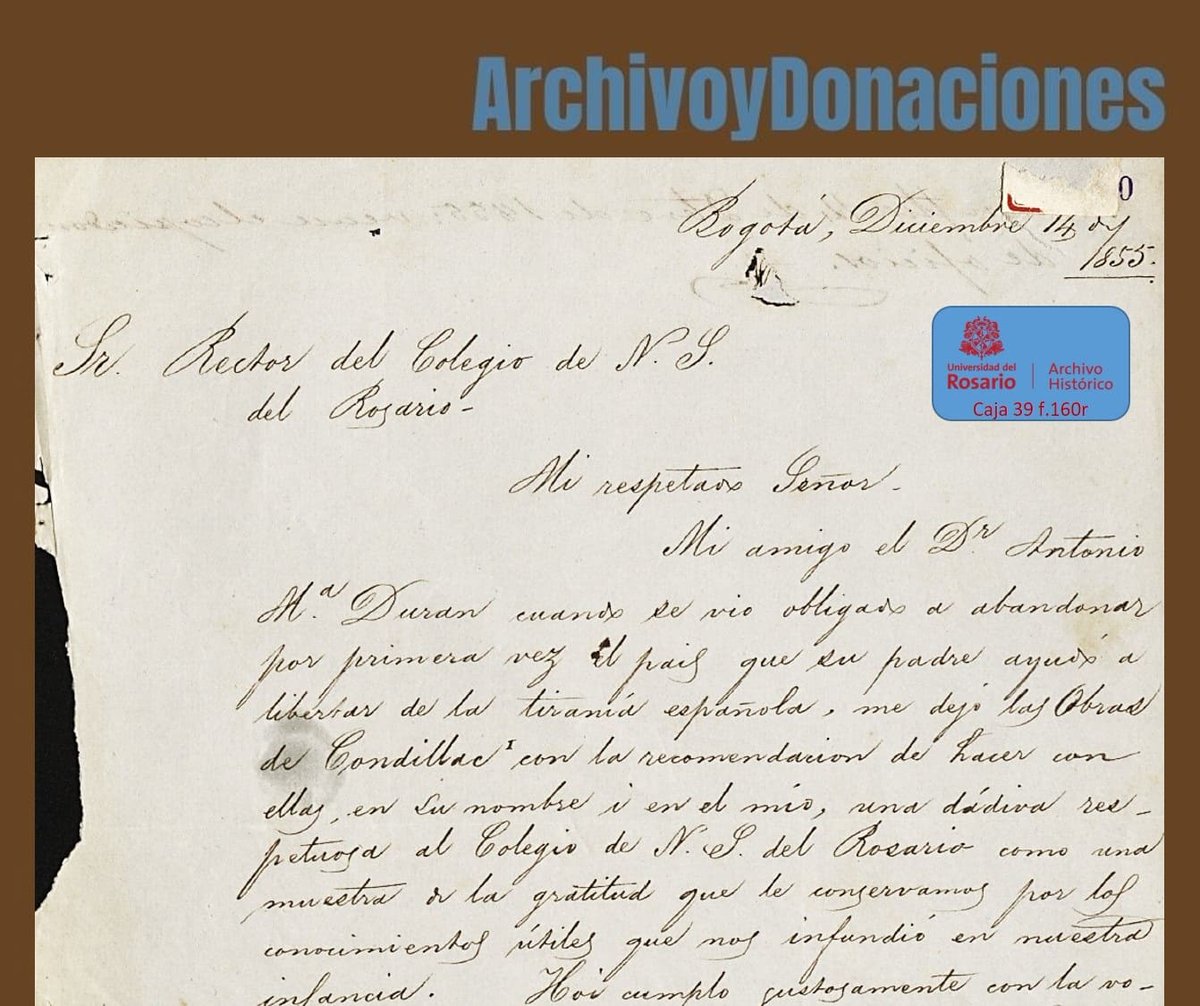 ArchivoyDonaciones
0
Bogotá, Diciembre 14 de
1855.
Universidad del
Rosario
Archivo
Histórico
Caja 39 f.160r
Sr. Rector del Colegio de N. S.
del Rosario-
Mi respetado Señor-
Mi amigo el Dr Antonio
M.a Duran cuando se vio obligado a abandonar
por primera vez el pais que su padre ayudó a
libertar de la tiranía española, me dejó las Obras
de Condillac con la recomendacion de hacer con
ellas, en su nombre i en el mio, una dádiva res-
petuosa al Colegio de N. S. del Rosario como una
muestra de la gratitud que le conservamos por los
conocimientos útiles que nos infundió en nuestra
infancia. Hoi cumplo gustosamente con la vo-